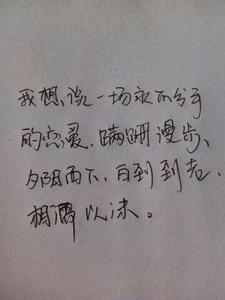 我想谈一场永不分手
的恋爱、蹒跚漫步、
夕阳西下、白到到老、
相濡以沫。